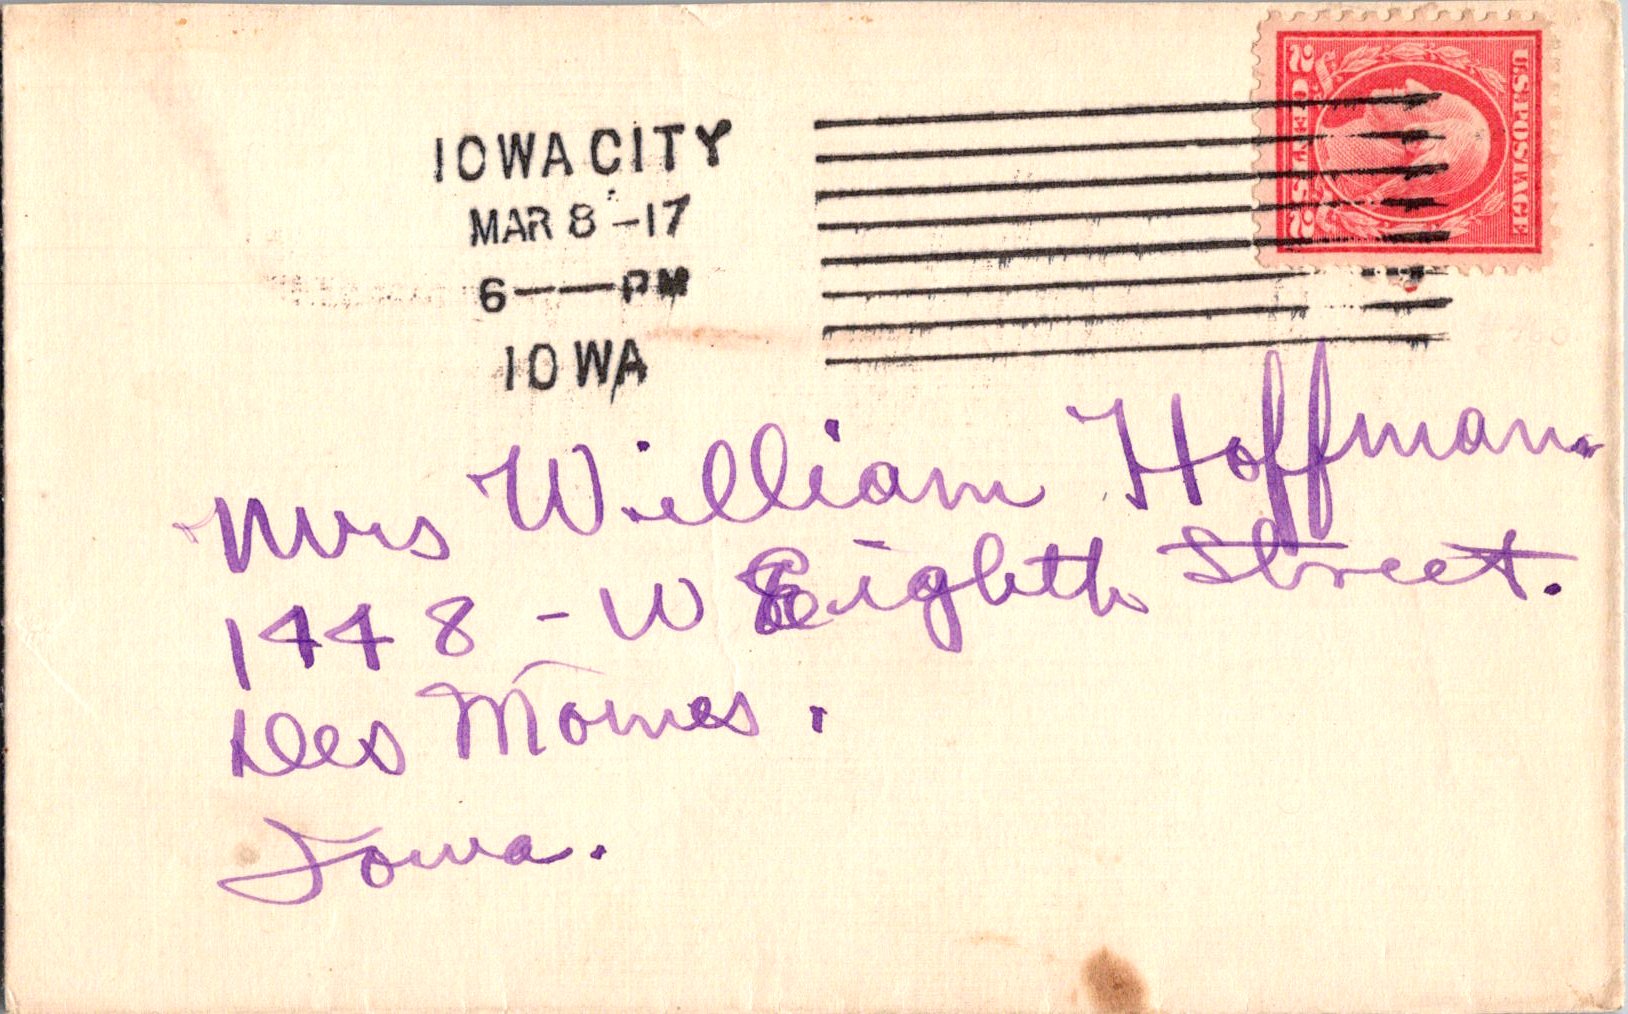 IOWA CITY
MAR 8 -17
6——PM
IOWA
U.S. POSTAGE
2 CENTS 2
Mrs William Hoffman.
1448 - W Eighth Street.
Des Moines.
Iowa.